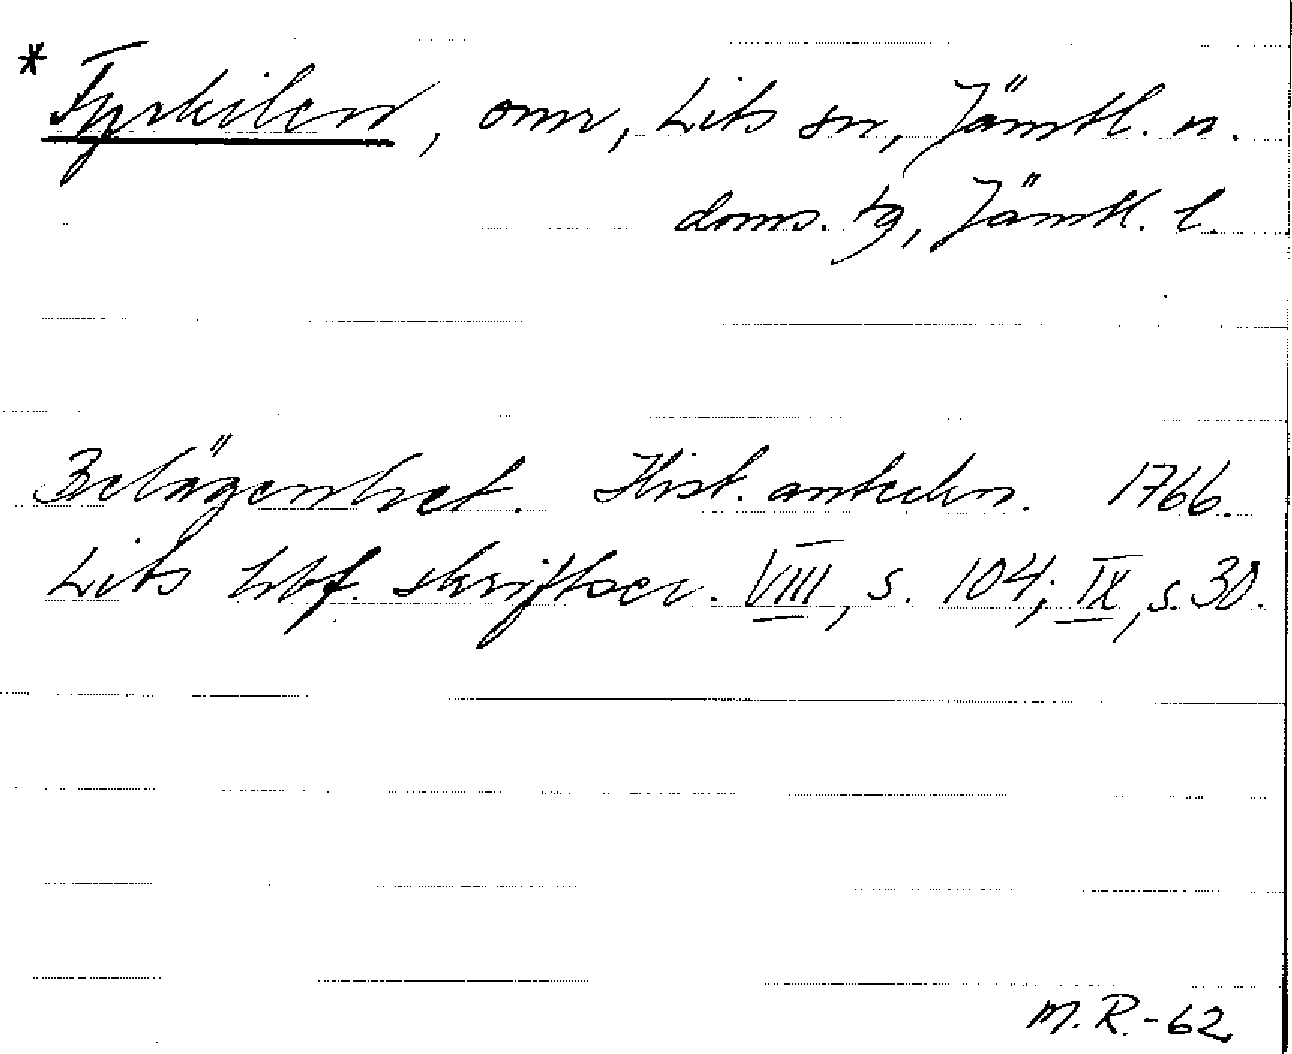 * Fyrkilen, omr, Lits sn, Jämtl. n.
doms. tg, Jämtl. l.
Belägenhet. Hist. anteckn. 1766.
Lits hbf. skriftser. VIII, s. 104; IX, s. 30.
M.R.-62